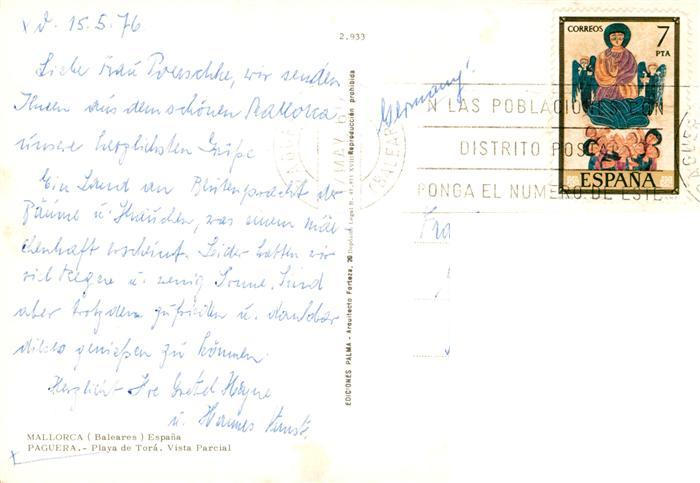 d. 15.5.76
2.933
Liebe Frau Poerschke, wir senden
Ihnen aus dem schönen Mallorca
unsere herzlichsten Grüße
Ein Land an Blütenpracht der
Bäume u. Sträucher, was einem mär
chenhaft erscheint. Leider hatten wir
viel Regen u. wenig Sonne. Sind
aber trotzdem zufrieden u. dankbar
dieses genießen zu können.
Herzlicht Ihre Gretel
u. Hannes
MALLORCA ( Baleares ) España
PAGUERA.- Playa de Torá. Vista Parcial
EDICIONES PALMA - Arquitecto Forteza, 20 Reproducción prohibida
Germany!
CORREOS 7
PTA
ESPAÑA
N LAS POBLACIONES CON
DISTRITO POSTAL
PONGA EL NUMERO DE ESTE
MAY
(BALEAR
Fra